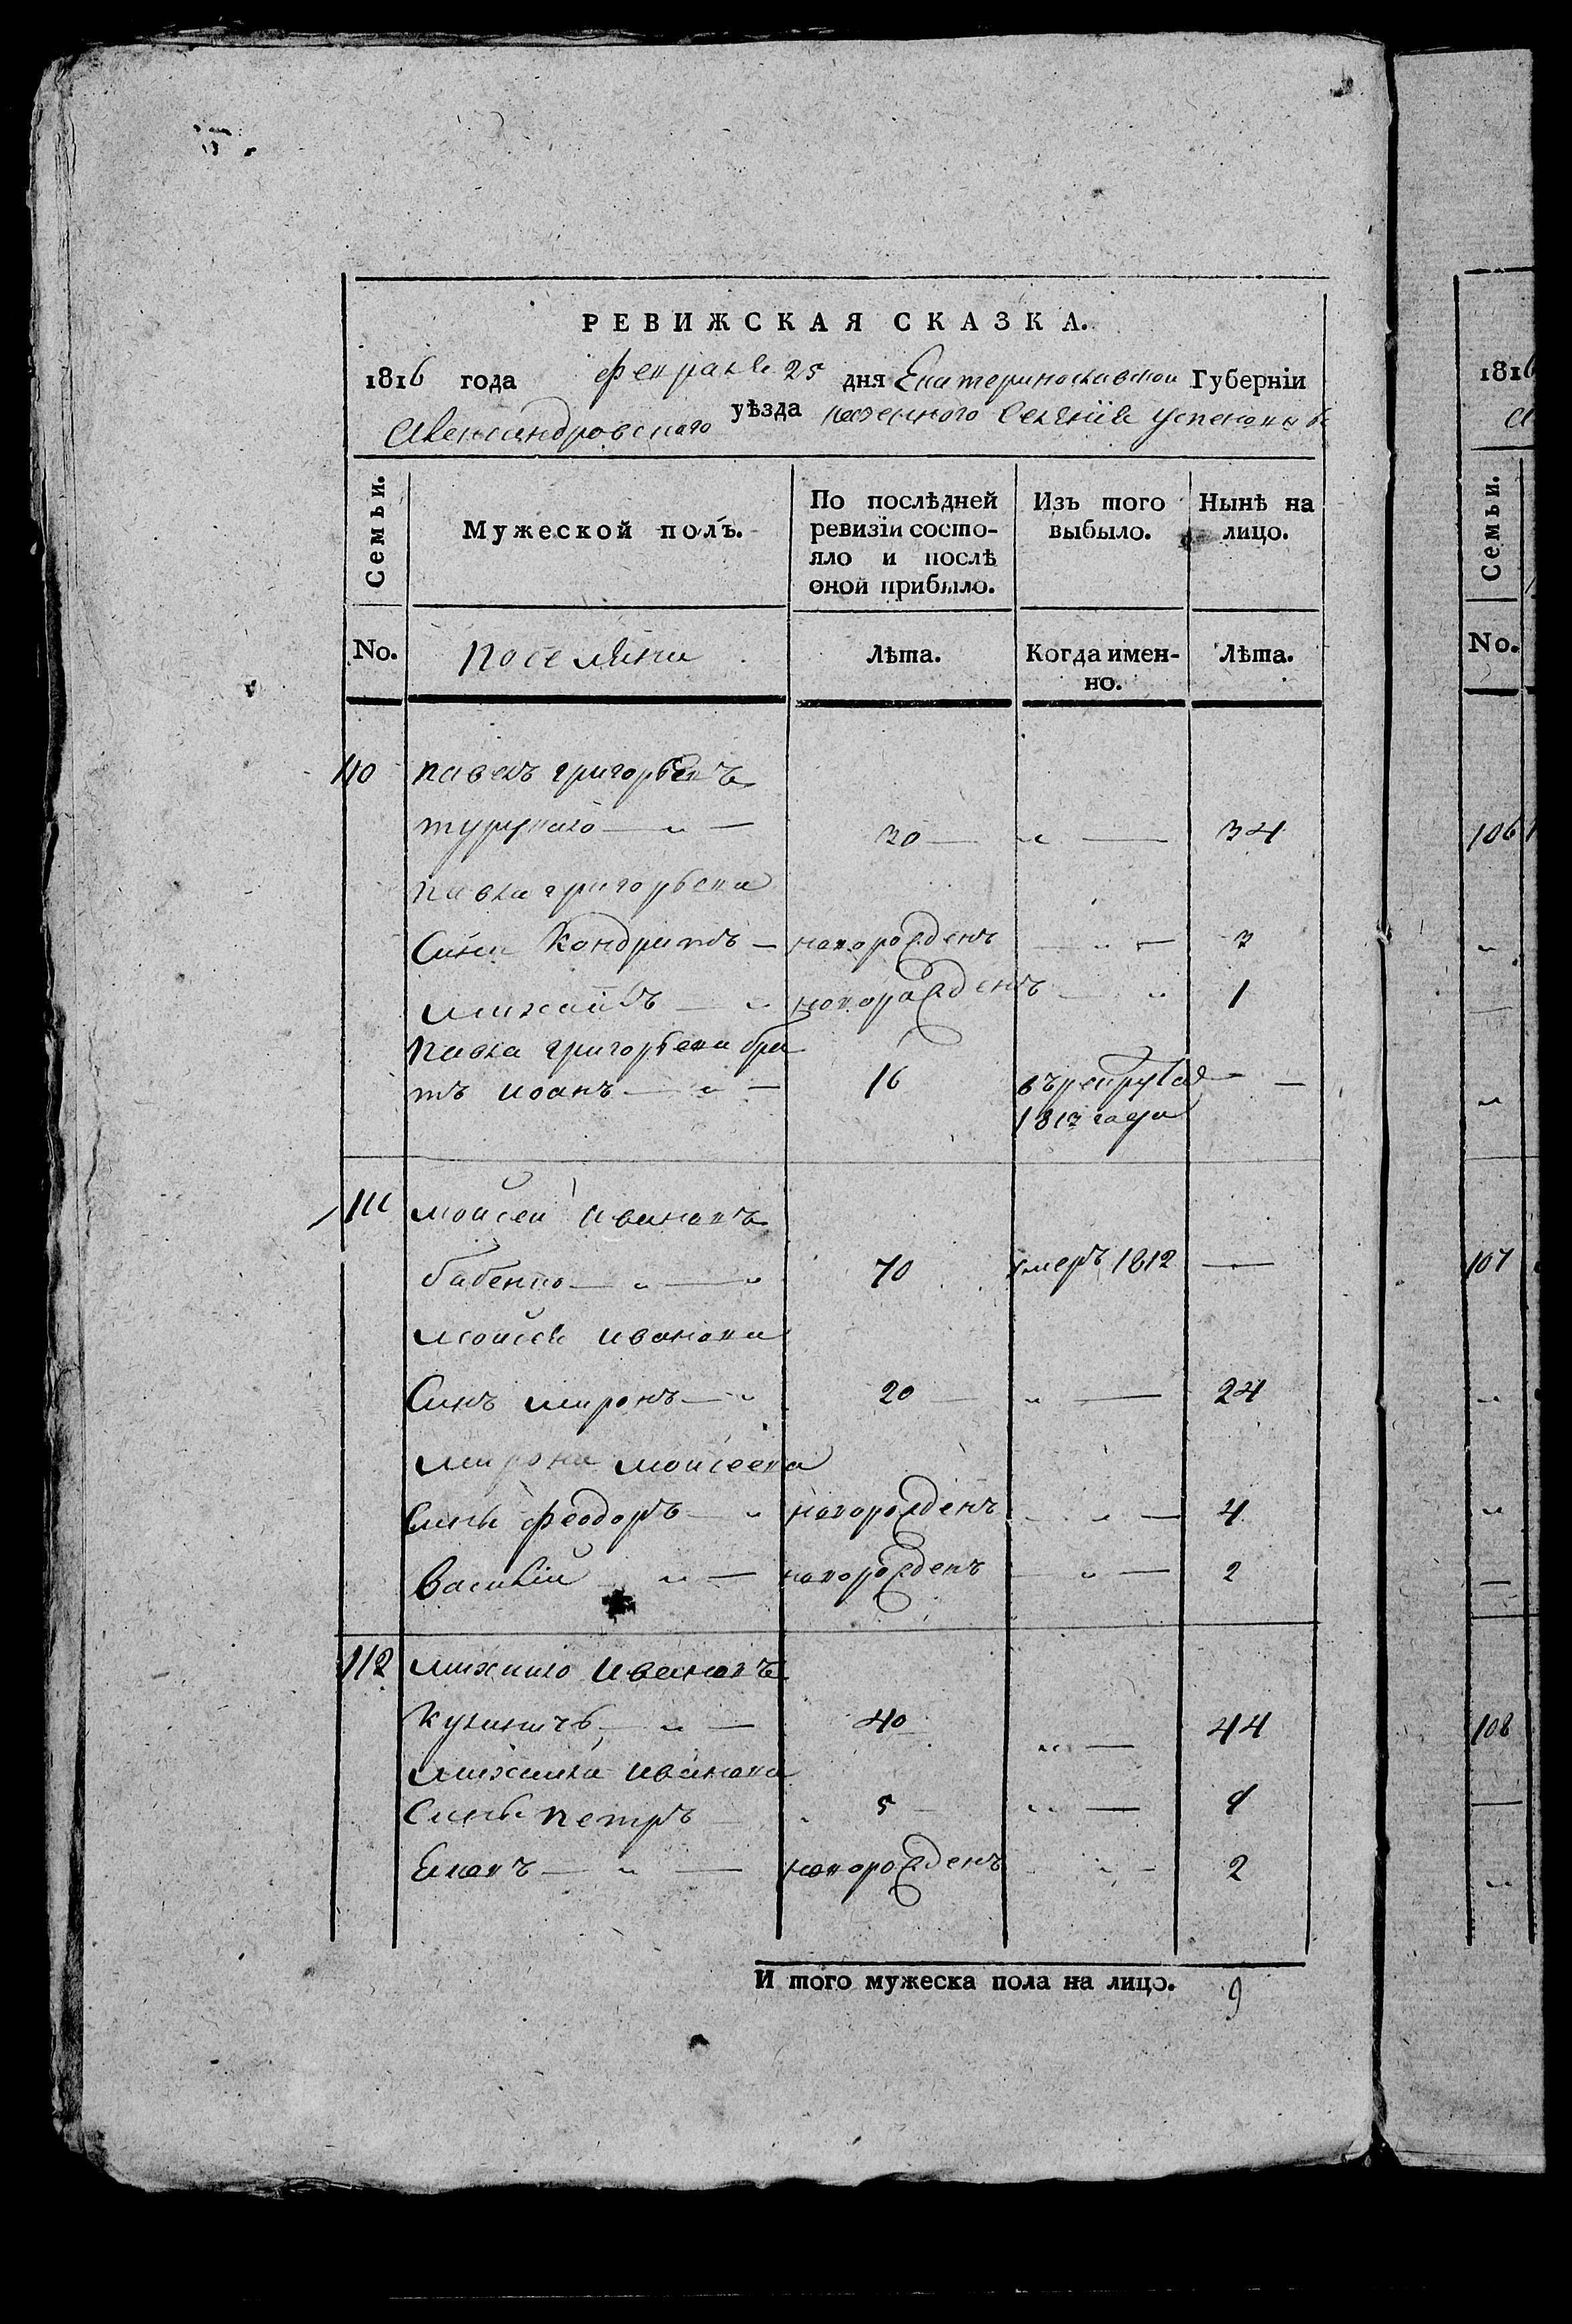 РЕВИЖСКАЯ СКАЗКА.
1816 года февраля 25 дня Екатеринославской Губерніи
Александровского уѣзда казенного Селенія Успеновки
Семьи.
Мужеской полъ.
По послѣдней ревизіи состо-
яло и послѣ
оной прибыло.
Изъ того
выбыло.
Нынѣ на
лицо.
No.
поселяни
Лѣта.
Когда имен-
но.
Лѣта.
110 павелъ григорьевъ
30 — " — 34
павла григорьева
Сини Кондратъ — новорожденъ — " — 3
михаилъ — " новорожденъ — " 1
павла григорьева бра
тъ иоанъ — " — 16 въ рекруты — —
1813 года
111 моисей ивановъ
бабенко — " — " 70 умеръ 1812 —
моисея иванова
Синъ миронъ — " 20 — " — 24
мирона моисеева
Сини феодоръ — " новорожденъ — " — 4
василій " — новорожденъ — " — 2
112 михайло ивановъ
40 " — 44
михайла иванова
Сини петръ 5 — " — 9
новорожденъ " — 2
И того мужеска пола на лицо. 9
1816
Семьи.
No.
106
107
108